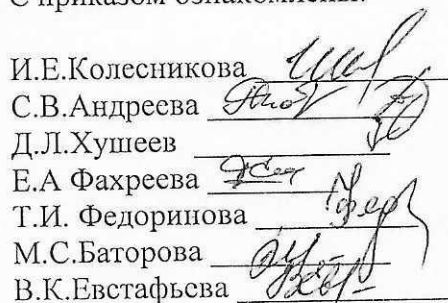 С приказом ознакомлены:
И.Е.Колесникова
С.В.Андреева
Д.Л.Хушеев
Е.А Фахреева
Т.И. Федоринова
М.С.Баторова
В.К.Евстафьева